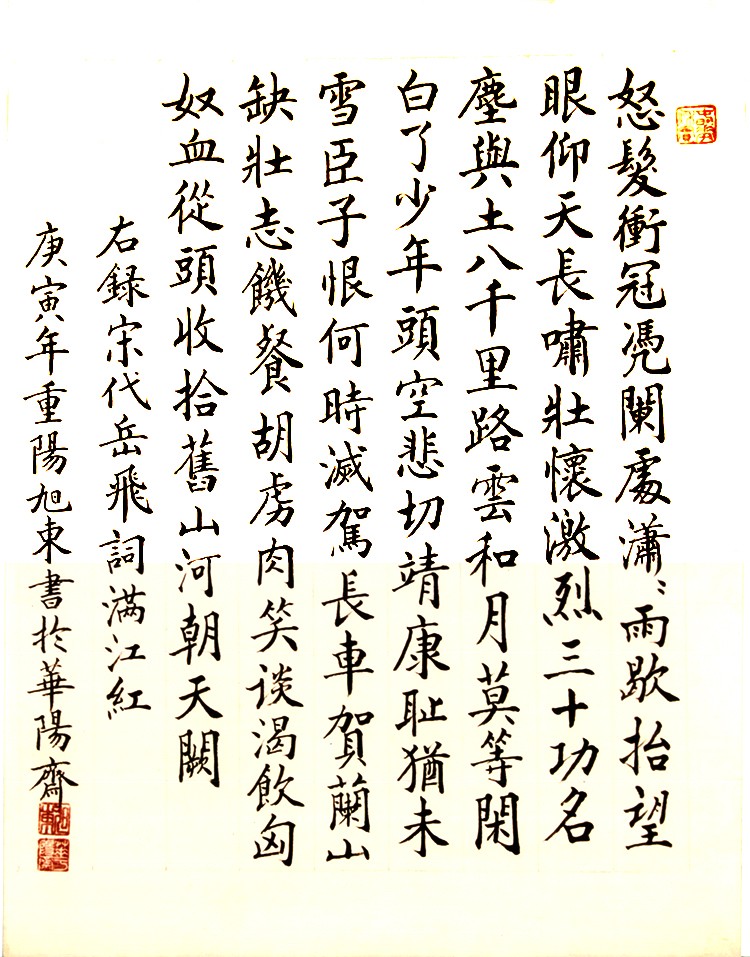 怒髮衝冠凴闌處瀟〻雨歇抬望
眼仰天長嘯壯懷激烈三十功名
塵與土八千里路雲和月莫等閑
白了少年頭空悲切靖康耻猶未
雪臣子恨何時滅駕長車賀蘭山
缺壯志饑餐胡虜肉笑谈渴飲匈
奴血從頭收拾舊山河朝天闕
右録宋代岳飛詞满江紅
庚寅年重陽旭東書於華陽齋